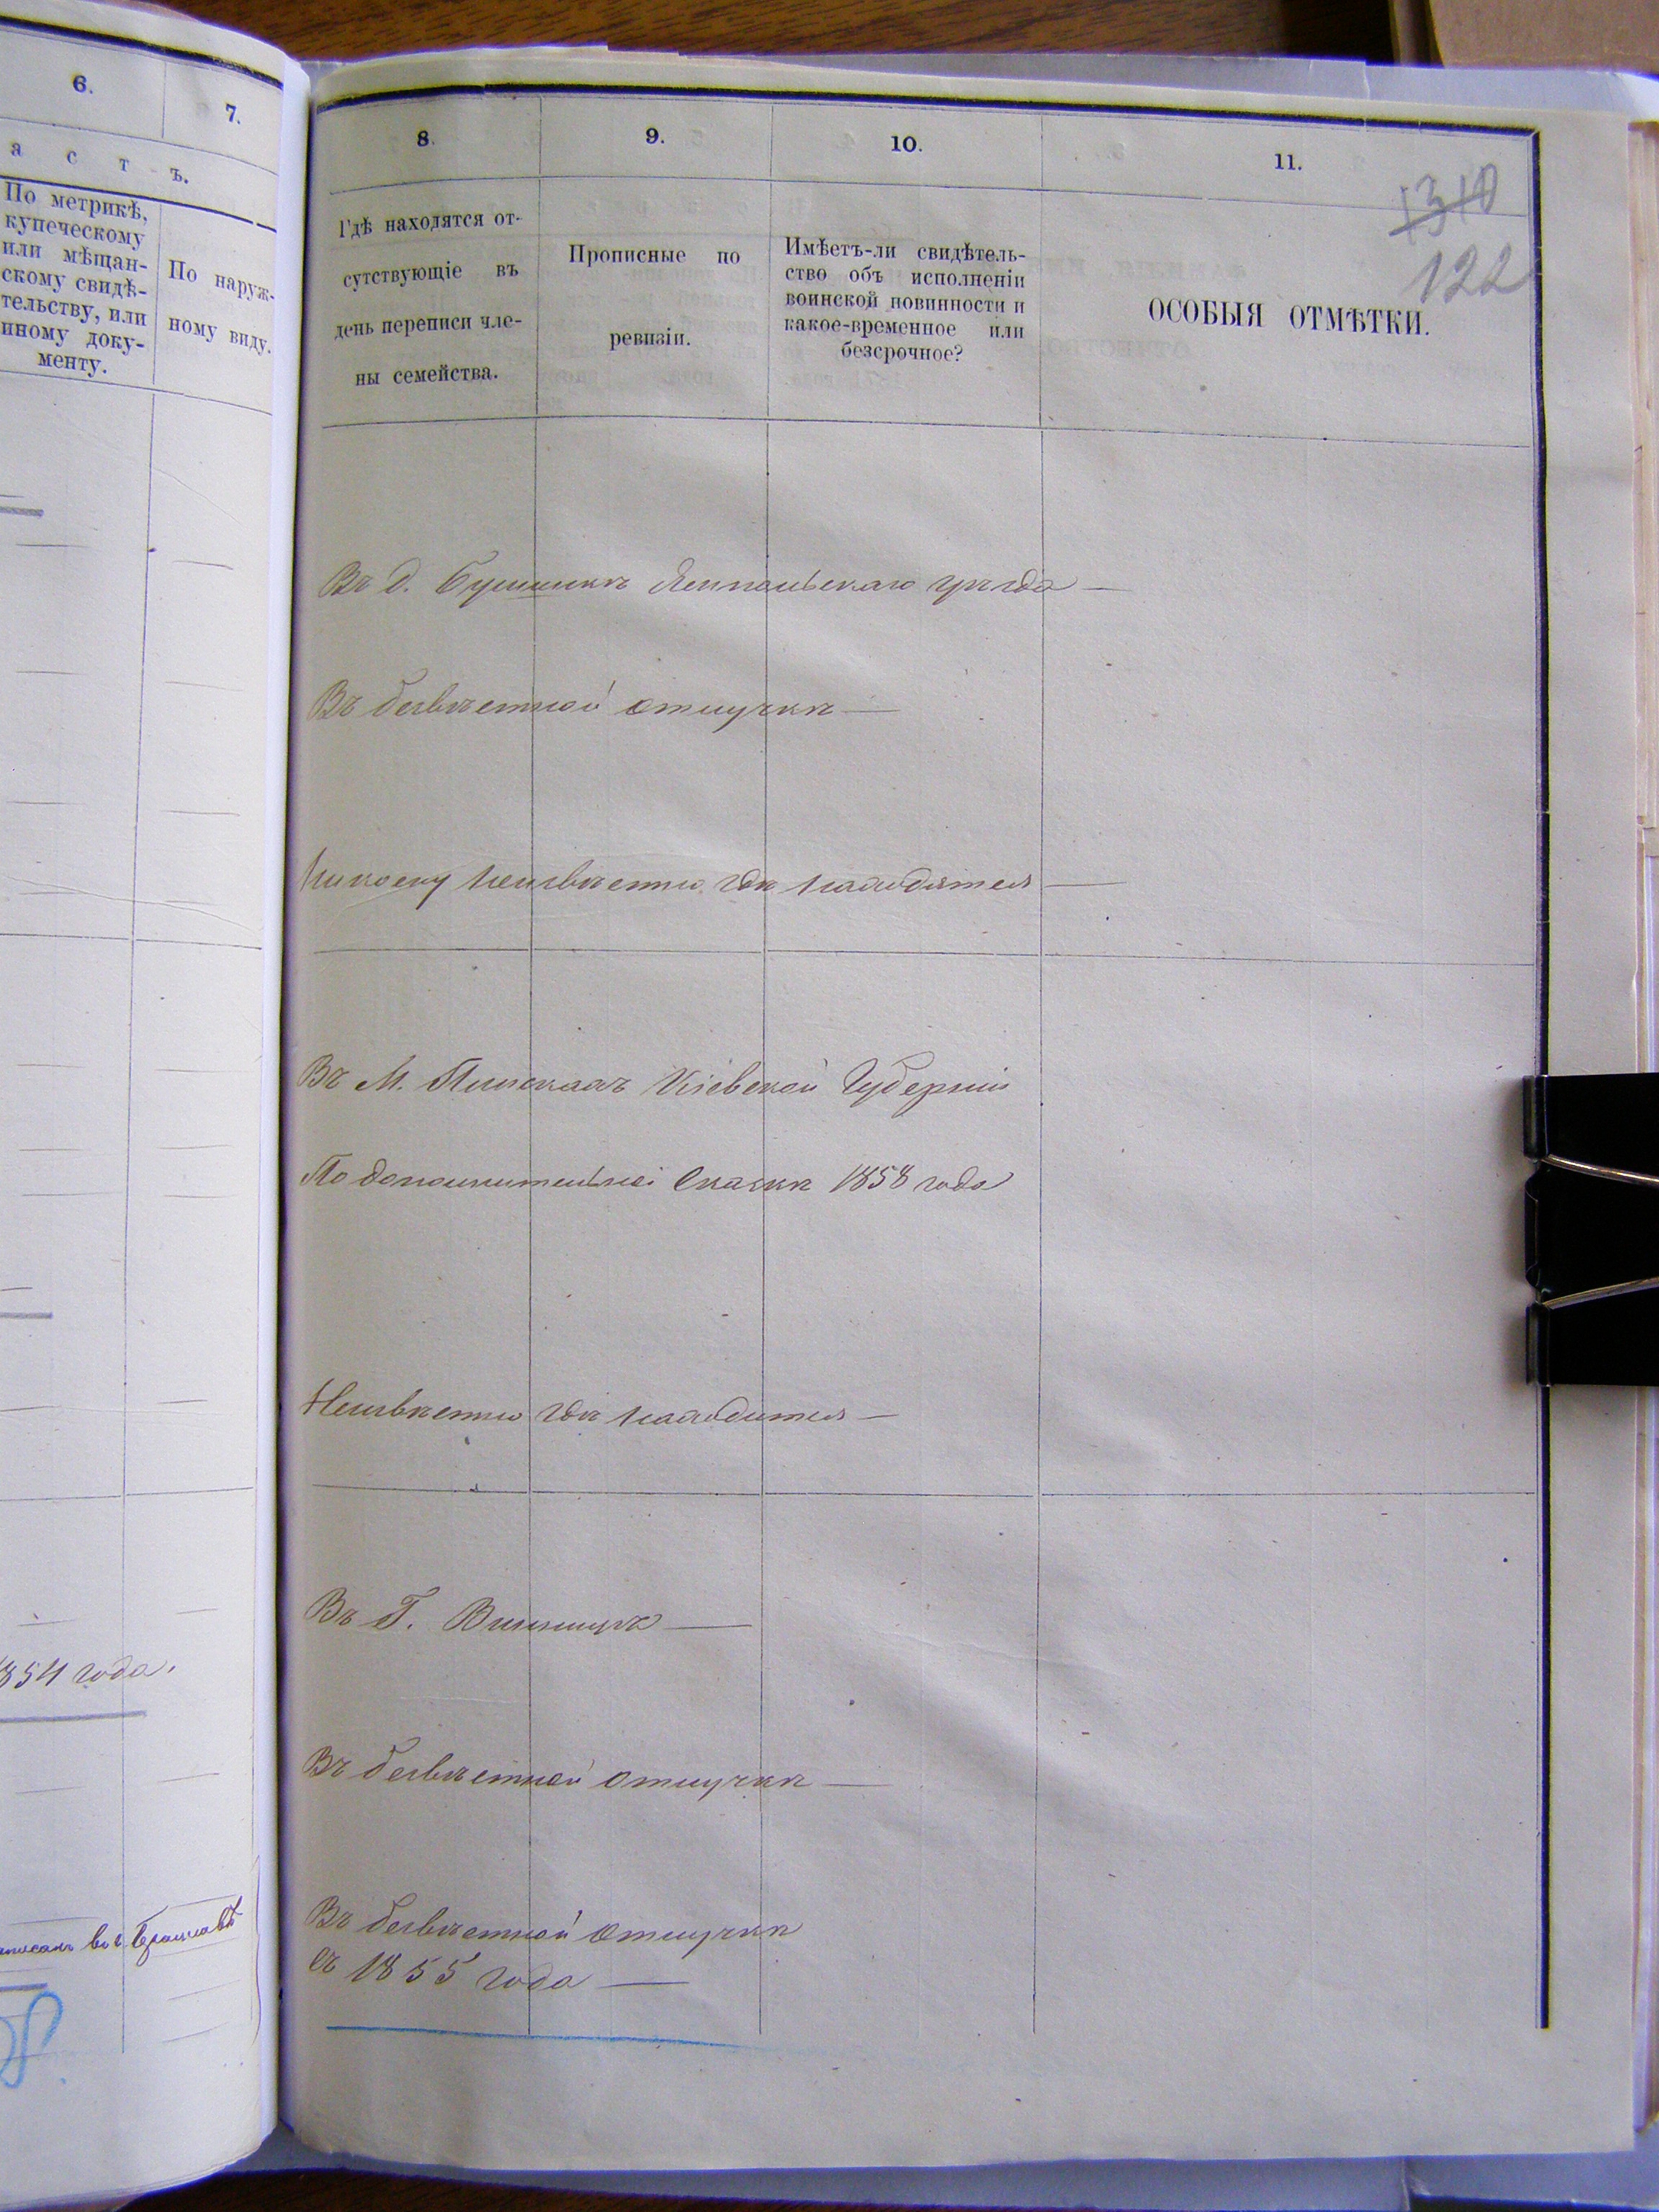 6.
7.
а с т ъ.
По метрикѣ,
купеческому
или мѣщан-
скому свидѣ-
тельству, или
иному доку-
менту.
По наруж-
ному виду.
854 года.
8.
9.
10.
11.
1310
122
Гдѣ находятся от-
сутствующіе въ
день переписи чле-
ны семейства.
Прописные по
ревизіи.
Имѣетъ-ли свидѣтель-
ство объ исполненіи
воинской повинности и
какое-временное или
безсрочное?
ОСОБЫЯ ОТМѢТКИ.
Въ д. Ямпольскаго уѣзда
Въ безвѣстной отлучкѣ
неизвѣстно гдѣ находятся
Въ М. Пискахъ Кіевской Губерніи
По дополнительной Сказкѣ 1858 года
Неизвѣстно гдѣ находится
Въ Г. Винницѣ
Въ безвѣстной отлучкѣ
Въ безвѣстной отлучкѣ
съ 1855 года